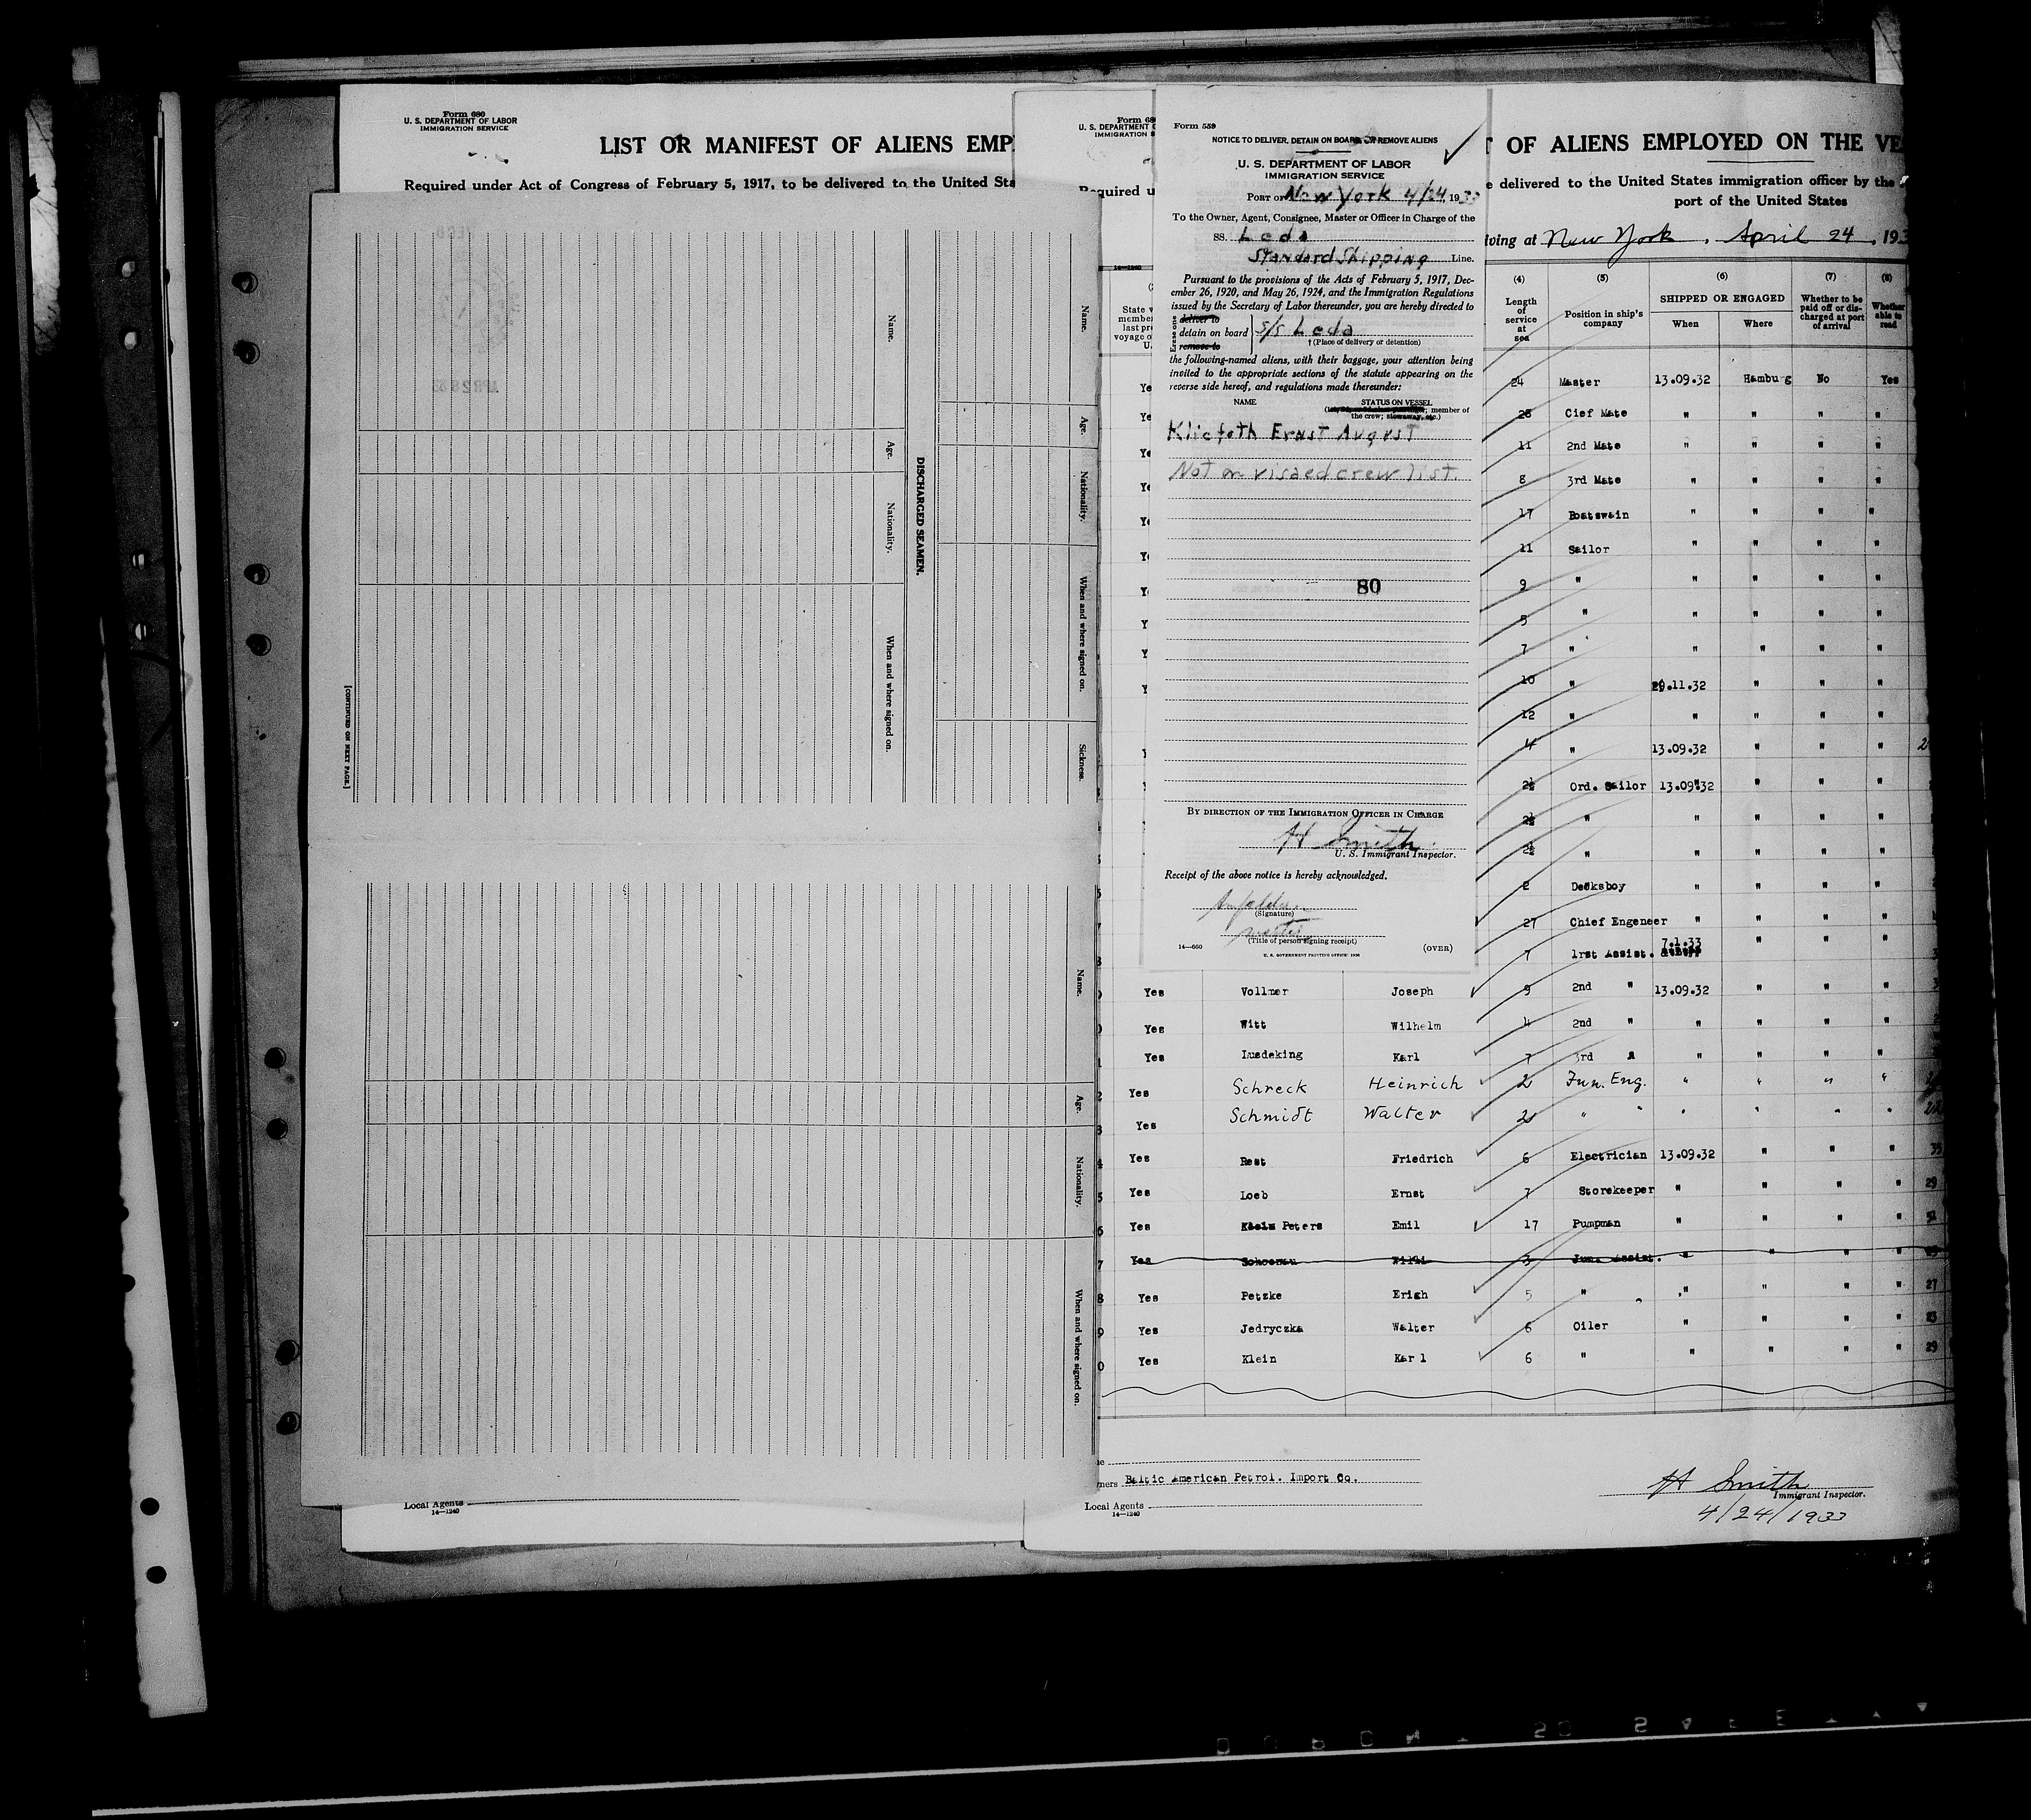 Form 680
U. S. DEPARTMENT OF LABOR
IMMIGRATION SERVICE
LIST OR MANIFEST OF ALIENS EMP
Required under Act of Congress of February 5, 1917, to be delivered to the United Sta
Name.
Age.
Nationality.
When and where signed on.
Sickness.
DISCHARGED SEAMEN.
Name.
Age.
Nationality.
When and where signed on.
[CONTINUED ON NEXT PAGE.]
Name.
Age.
Nationality.
When and where signed on.
Local Agents
14—1240
Form 68
U. S. DEPARTMENT O
IMMIGRATION S
Required u
14—1240
State w
member
last pr
voyage o
U.
Form 559
NOTICE TO DELIVER, DETAIN ON BOARD, OR REMOVE ALIENS
U. S. DEPARTMENT OF LABOR
IMMIGRATION SERVICE
PORT OF New York 4/24, 1933
To the Owner, Agent, Consignee, Master or Officer in Charge of the
SS. Leda
Standard Shipping Line.
Pursuant to the provisions of the Acts of February 5, 1917, Dec-
ember 26, 1920, and May 26, 1924, and the Immigration Regulations
issued by the Secretary of Labor thereunder, you are hereby directed to
Erase one
deliver to
detain on board S/S Leda
remove to
† (Place of delivery or detention)
the following-named aliens, with their baggage, your attention being
invited to the appropriate sections of the statute appearing on the
reverse side hereof, and regulations made thereunder:
NAME STATUS ON VESSEL
member of
the crew; stowaway, etc.)
Kliefoth Ernst August
Not on visaed crew list.
80
BY DIRECTION OF THE IMMIGRATION OFFICER IN CHARGE
H Smith
U. S. Immigrant Inspector.
Receipt of the above notice is hereby acknowledged.
(Signature)
master
(Title of person signing receipt)
14—660 (OVER)
U. S. GOVERNMENT PRINTING OFFICE: 1930
T OF ALIENS EMPLOYED ON THE VE
e delivered to the United States immigration officer by the
port of the United States
iving at New York, April 24, 193
(4) (5) (6) (7) (8)
Length of service at sea
Position in ship's company
SHIPPED OR ENGAGED
When Where
Whether to be paid off or dis-charged at port of arrival
Whether able to read
24 Master 13.09.32 Hamburg No Yes
28 Cief Mate " " " "
11 2nd Mate " " " "
8 3rd Mate " " " "
17 Boatswain " " " "
11 Sailor " " " "
9 " " " " "
5 " " " " "
7 " " " " "
10 " 29.11.32 " " "
12 " " " " "
4 " 13.09.32 " " "
2½ Ord. Sailor 13.09.32 " " "
2½ " " " " "
2½ " " " " "
2 Decksboy " " " "
27 Chief Engeneer " " " "
7 1rst Assist. 7.1.33 " " "
Yes Vollmer Joseph 9 2nd " 13.09.32 " " "
Yes Witt Wilhelm 4 2nd " " " " "
Yes Luedeking Karl 7 3rd " " " " "
Yes Schreck Heinrich 2 Jun. Eng. " " " "
Yes Schmidt Walter 2 " " " " " "
Yes Rest Friedrich 6 Electrician 13.09.32 " " " 33
Yes Loeb Ernst 7 Storekeeper " " " " 29
Yes Peters Emil 17 Pumpman " " " "
Yes Schoenau Willi 3 Jun. Assist. " " " "
Yes Petzke Erich 5 " " " " " 27
Yes Jedryczka Walter 6 Oiler " " " " 23
Yes Klein Karl 6 " " " " " 29
ners Baltic American Petrol. Import Co.
Local Agents
14—1240
H Smith
Immigrant Inspector.
4/24/1933